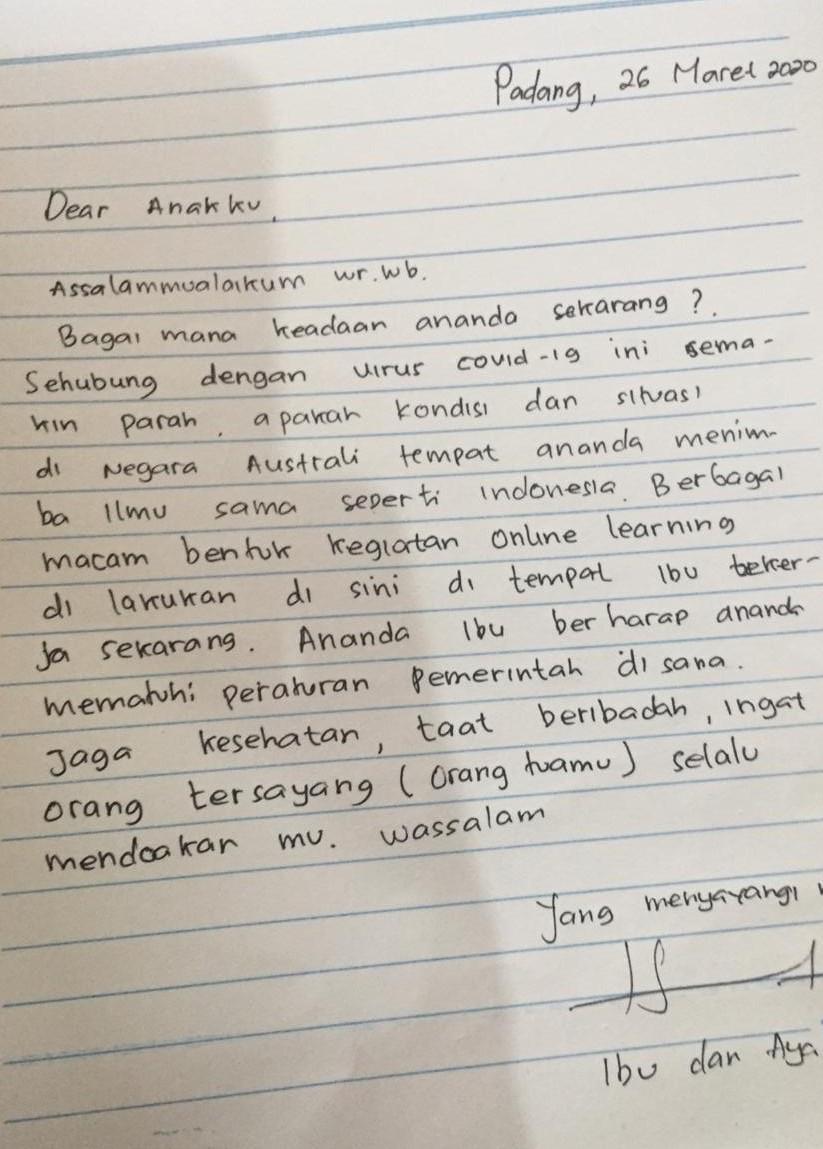 Padang, 26 Maret 2020
Dear Anakku,
Assalammualaikum wr.wb.
Bagai mana keadaan ananda sekarang ?.
Sehubung dengan virus covid-19 ini sema-
kin parah, apakah kondisi dan situasi
di Negara Australi tempat ananda menim-
ba Ilmu sama seperti Indonesia. Berbagai
macam bentuk kegiatan online learning
di lakukan di sini di tempat Ibu beker-
ja sekarang. Ananda Ibu berharap ananda
mematuhi peraturan pemerintah di sana.
Jaga kesehatan, taat beribadah, ingat
orang tersayang (orang tuamu) selalu
mendoakan mu. wassalam
Yang menyayangi
Ibu dan Aya